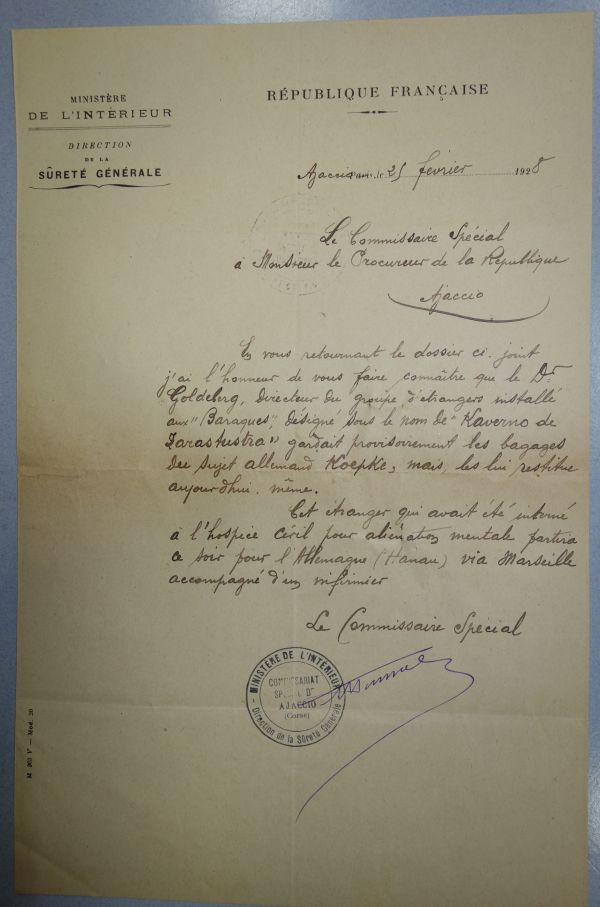 MINISTÈRE
DE L'INTÉRIEUR
DIRECTION
DE LA
SÛRETÉ GÉNÉRALE
RÉPUBLIQUE FRANÇAISE
Ajaccio, le 25 février 1928
Le Commissaire Spécial
à Monsieur le Procureur de la République
Ajaccio
En vous retournant le dossier ci-joint
j'ai l'honneur de vous faire connaître que le Dr
Goldberg, Directeur du groupe d'étrangers installé
aux "Baraques", désigné sous le nom de "Kaverno de
Zarastustra" gardait provisoirement les bagages
du sujet allemand Koepke, mais, les lui restitue
aujourd'hui même.
Cet étranger qui avait été interné
à l'hospice civil pour aliénation mentale partira
ce soir pour l'Allemagne (Hanau) via Marseille
accompagné d'un infirmier
Le Commissaire Spécial
MINISTÈRE DE L'INTÉRIEUR
COMMISSARIAT
SPÉCIAL D'
AJACCIO
(Corse)
Direction de la Sûreté Générale